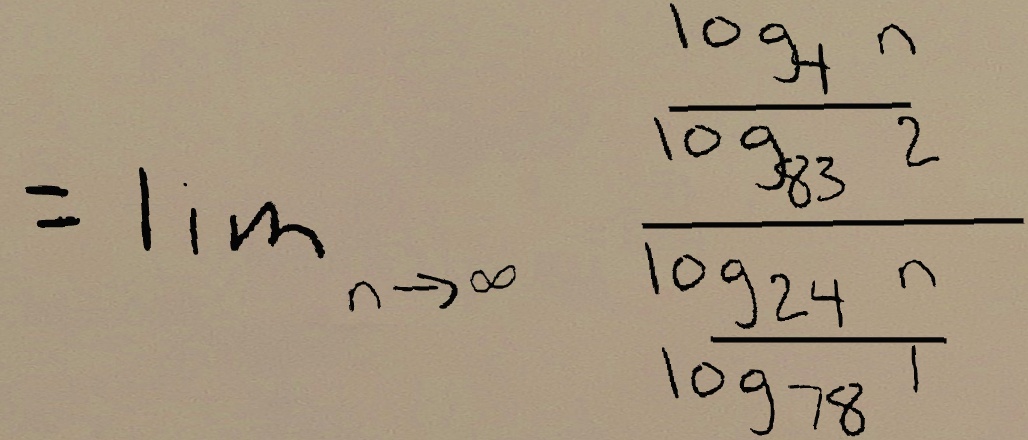 = lim_{n→∞} \frac{\frac{log_4 n}{log_{83} 2}}{\frac{log_{24} n}{log_{78} 1}}